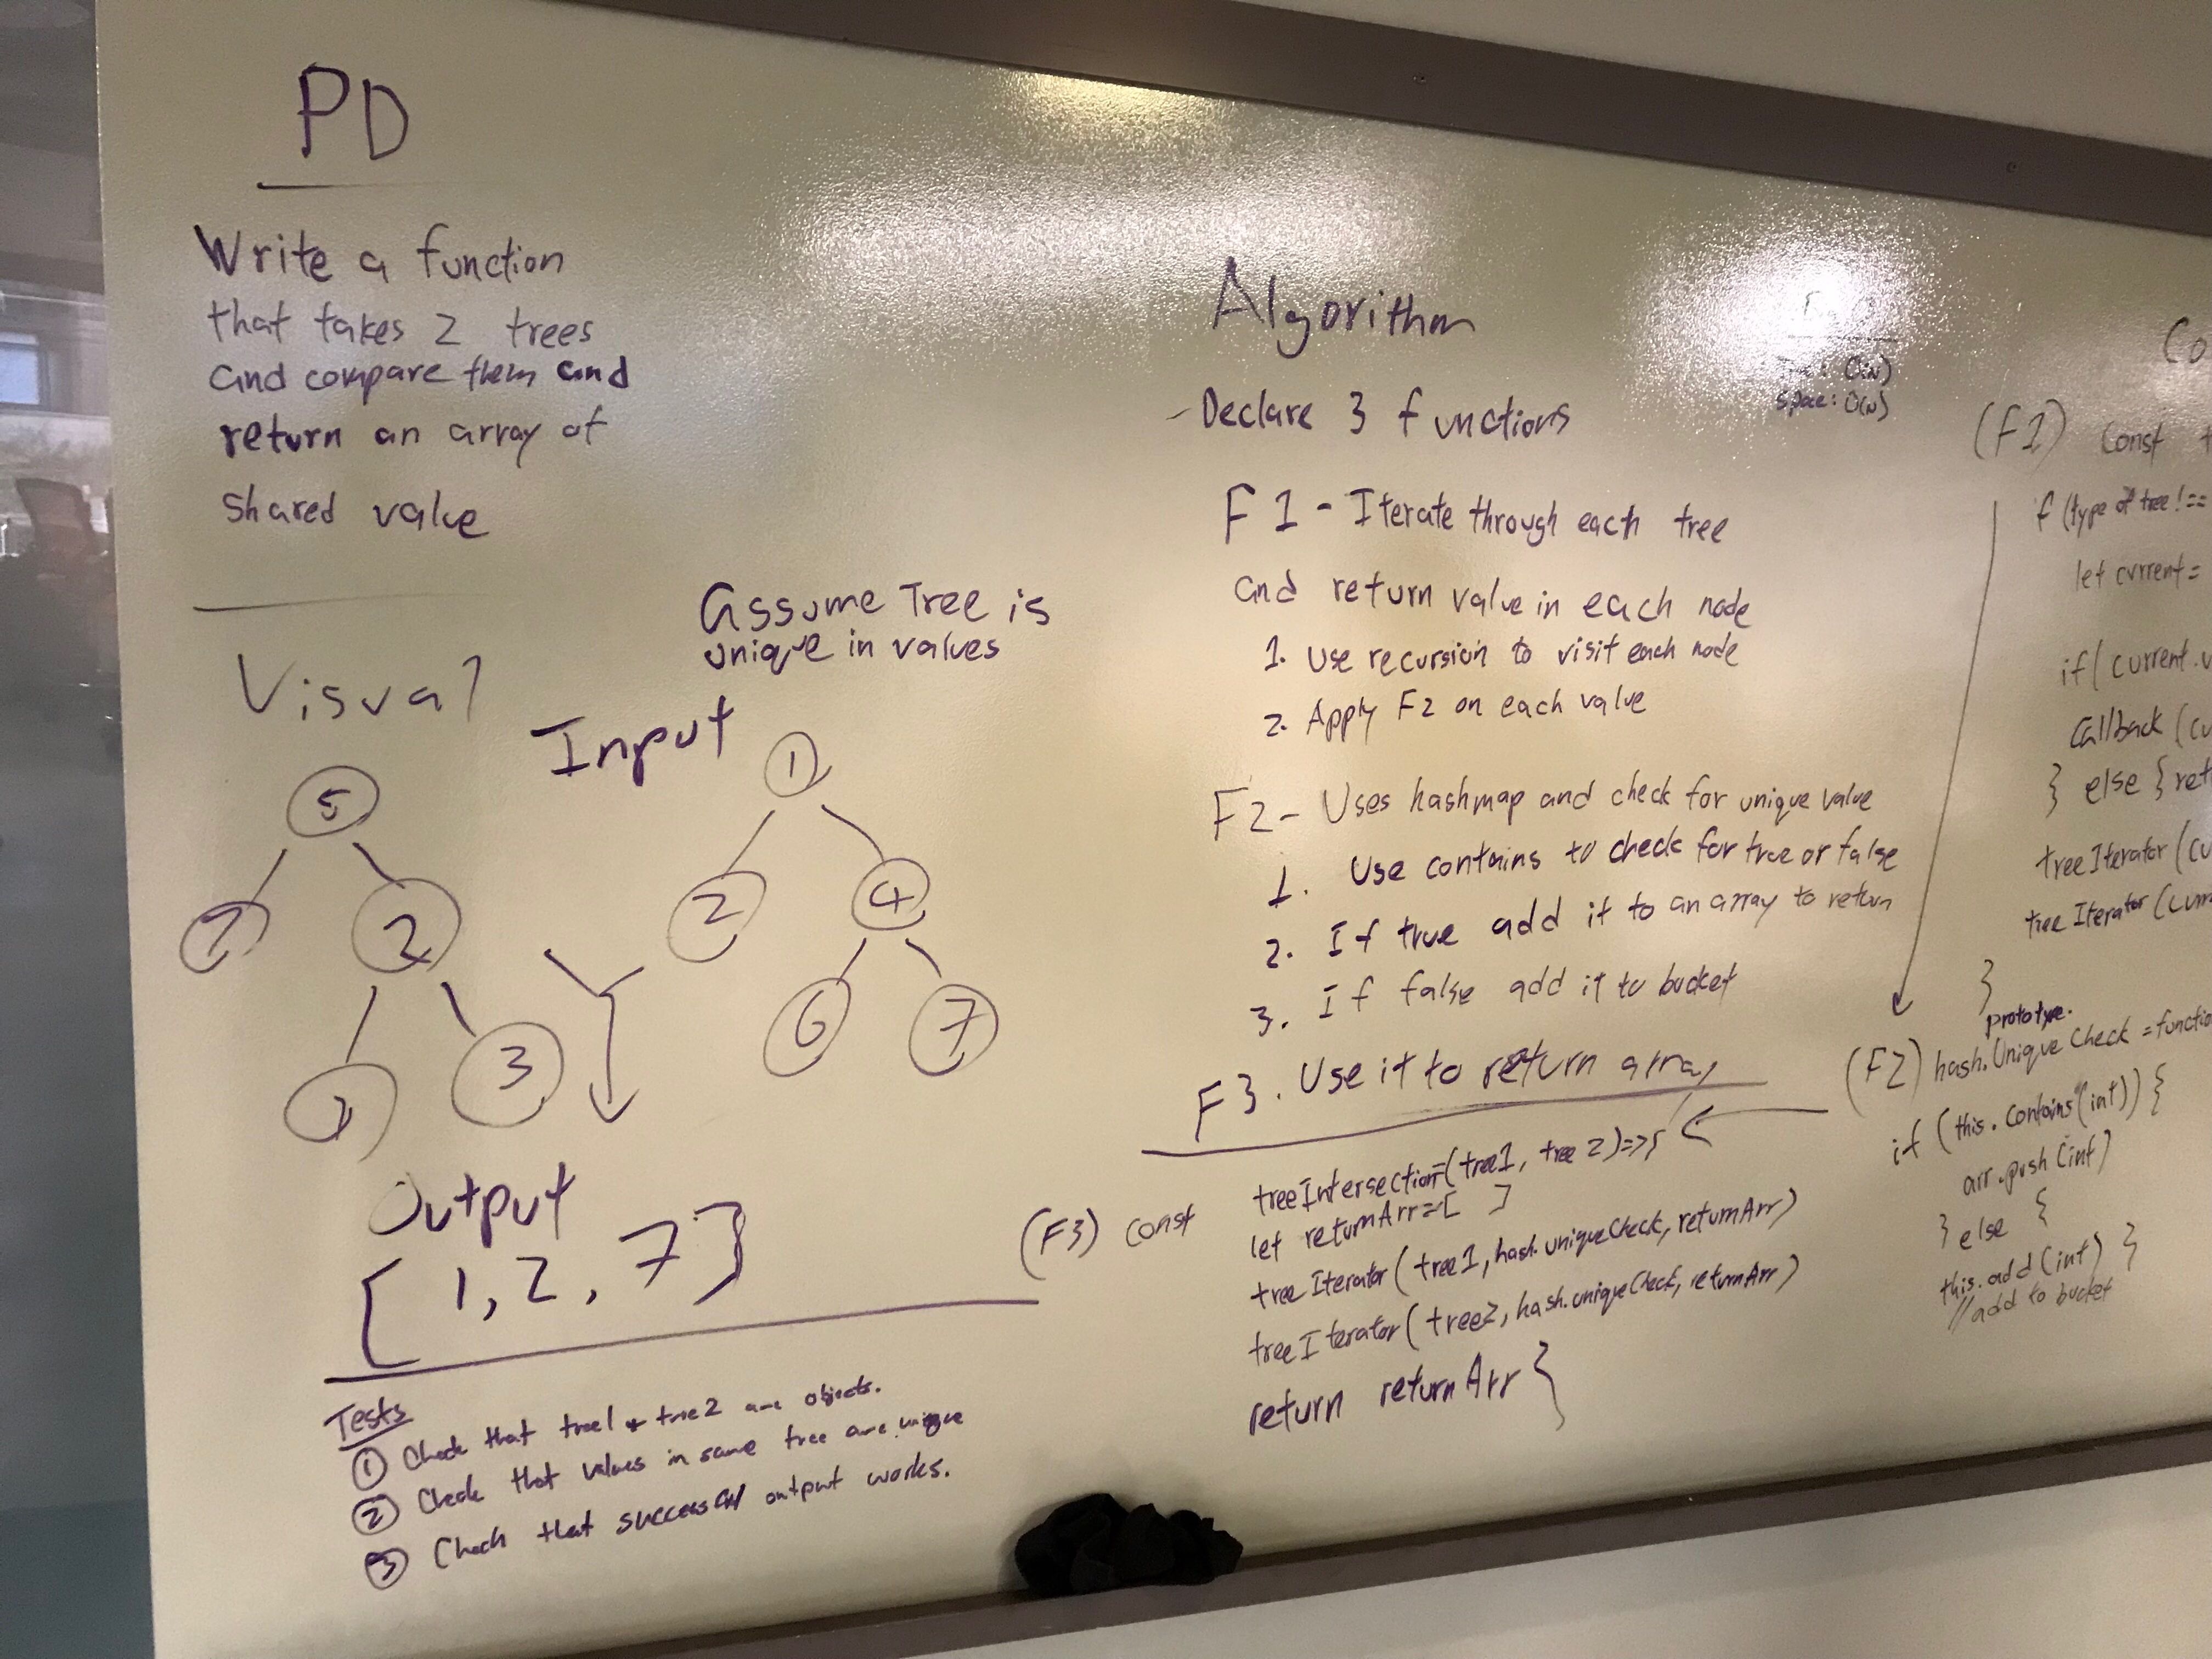 PD
Write a function
that takes 2 trees
and compare them and
return an array of
shared value
Assume Tree is
unique in values
Visual
Input
5
7
2
3
1
2
4
6
7
Output
[ 1, 2, 7 ]
Tests
① Check that tree1 & tree2 are objects.
② Check that values in same tree are unique
③ Check that successful output works.
Algorithm
- Declare 3 functions
F1 - Iterate through each tree
and return value in each node
1. Use recursion to visit each node
2. Apply F2 on each value
F2 - Uses hashmap and check for unique value
1. Use contains to check for true or false
2. If true add it to an array to return
3. If false add it to bucket
F3. Use it to return array
(F3) const treeIntersection=(tree1, tree2)=>{
let returnArr=[ ]
treeIterator(tree1, hash.uniqueCheck, returnArr)
treeIterator(tree2, hash.uniqueCheck, returnArr)
return returnArr }
O(N)
Space: O(N)
Co
(F1) Const t
f (type of tree !==
let current=
if( current.v
Callback (cu
} else { ret
treeIterator(cu
treeIterator(curr
}
prototype.
(F2) hash.UniqueCheck =functio
if (this.contains(int)) {
arr.push(int)
} else {
this.add(int) }
//add to bucket